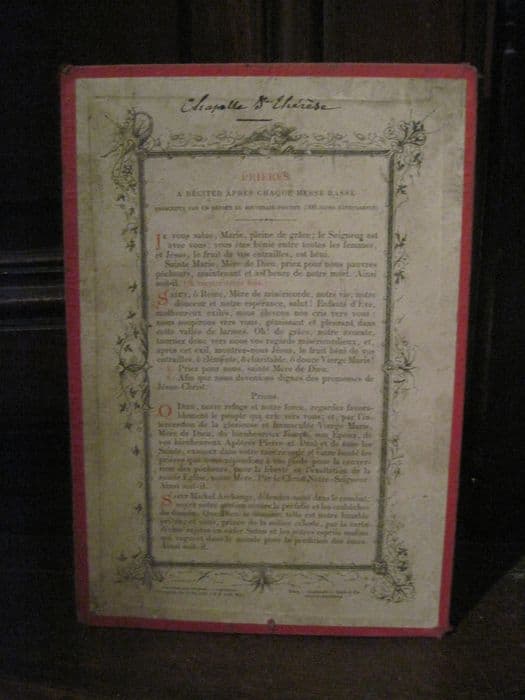 Chapelle Ste Thérèse
PRIÈRES
A RÉCITER APRÈS CHAQUE MESSE BASSE
Je vous salue, Marie, pleine de grâce; le Seigneur est
avec vous; vous êtes bénie entre toutes les femmes,
et Jésus, le fruit de vos entrailles, est béni.
Sainte Marie, Mère de Dieu, priez pour nous pauvres
pécheurs, maintenant et à l'heure de notre mort. Ainsi
soit-il.
Salut, ô Reine, Mère de miséricorde, notre vie, notre
douceur et notre espérance, salut! Enfants d'Ève,
malheureux exilés, nous élevons nos cris vers vous;
nous soupirons vers vous, gémissant et pleurant dans
cette vallée de larmes. Oh! de grâce, notre avocate,
tournez donc vers nous vos regards miséricordieux, et,
après cet exil, montrez-nous Jésus, le fruit béni de vos
entrailles, ô clémente, ô charitable, ô douce Vierge Marie!
Priez pour nous, sainte Mère de Dieu.
Afin que nous devenions dignes des promesses de
Jésus-Christ.
Prions.
O Dieu, notre refuge et notre force, regardez favora-
blement le peuple qui crie vers vous; et, par l'in-
tercession de la glorieuse et immaculée Vierge Marie,
Mère de Dieu, du bienheureux Joseph, son Époux, de
vos bienheureux Apôtres Pierre et Paul et de tous les
Saints, exaucez dans votre miséricorde et votre bonté les
prières que nous répandons à vos pieds pour la conver-
sion des pécheurs, pour la liberté et l'exaltation de la
sainte Église, notre Mère. Par le Christ Notre-Seigneur
Ainsi soit-il.
Saint Michel Archange, défendez-nous dans le combat;
soyez notre
prince de la milice céleste, par la vertu
Satan et les autres esprits malins
qui rôdent dans le monde pour la perdition des âmes.
Ainsi soit-il.